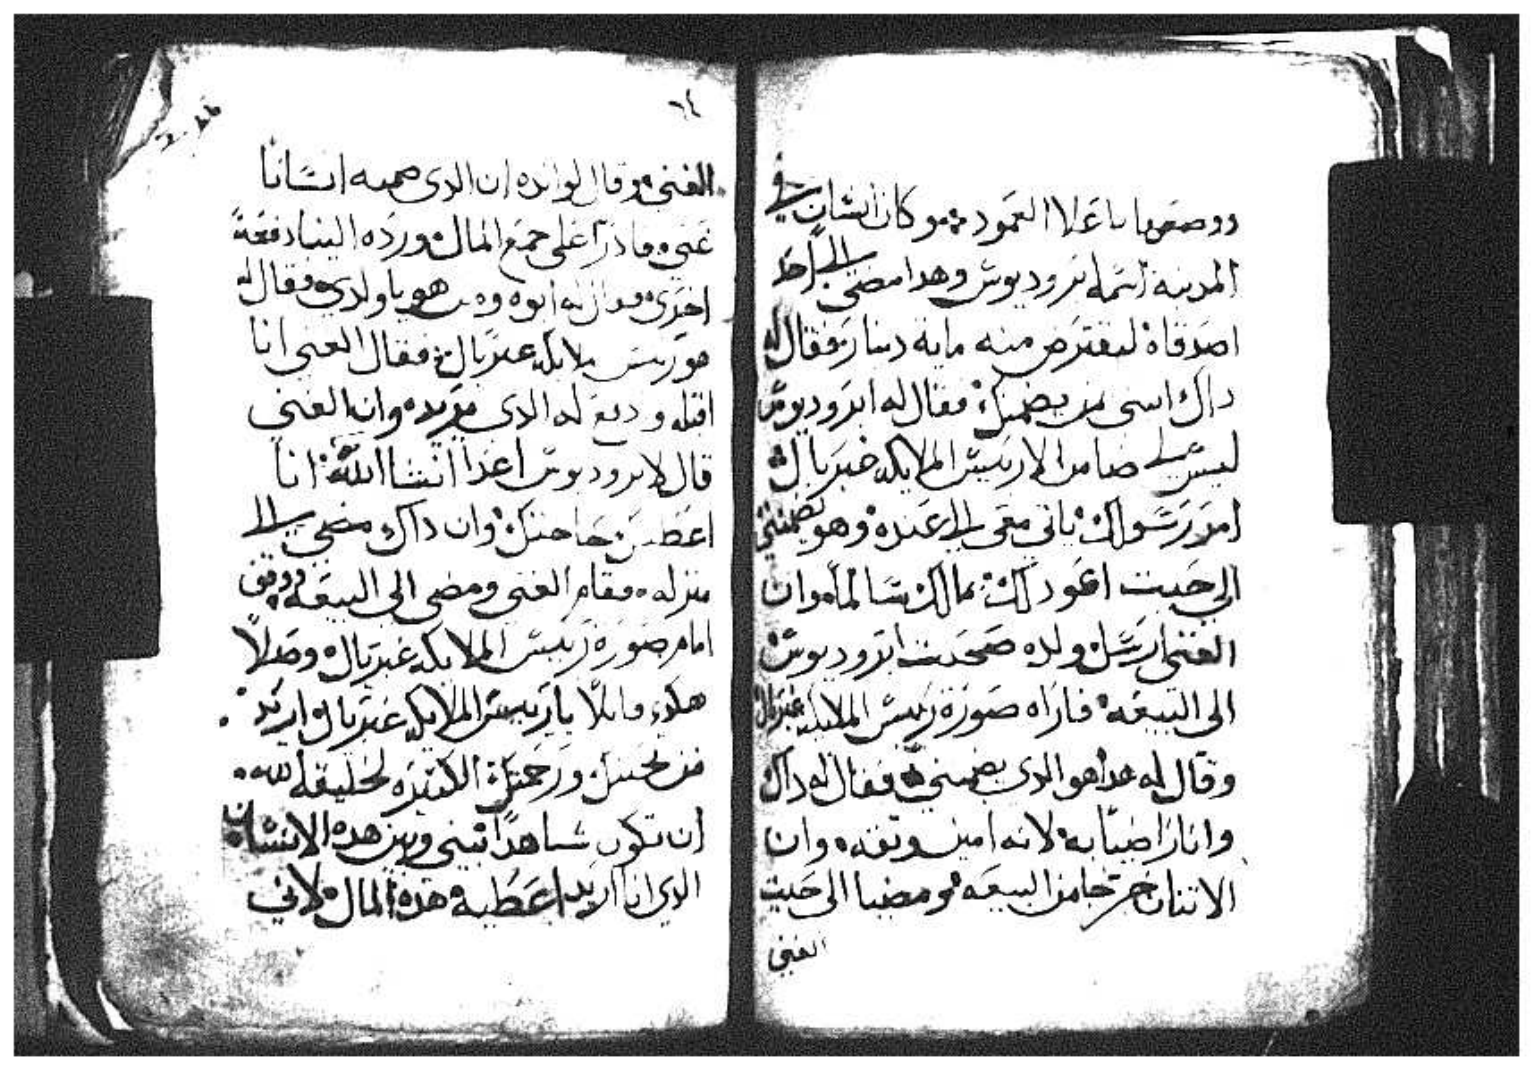 ووضعوها باعلا العمود وكان انسان في
المدينة اسمه ابروديوس وهدا مضى الى احد
اصدقاه ليقترض منه ماية دينار فقال له
داك اسى من يضمنك فقال له ابروديوس
ليس لي ضامن الا رييس الملايكه غبريال
امر رسولك ياتي معي الى عنده وهو يضمنني
الى حيت اعود لك بمالك سالماً وان
الغني ارسل ولده صحبت ابروديوس
الى البيعه فاراه صورة رييس الملايكه غبريال
وقال له هدا هو الدي يضمنني فقال له داك
وانا راضياً به لانه امين وتقه وان
الاتنان خرجا من البيعه ومضيا الى حيت
الغني
١٤
الغني وقال لوالده ان الدي ضمنه انساناً
غني وقادراً على جمع المال ورده الينا دفعة
اخرى وقال له ابوه ومن هو يا ولدي فقال له
هو رييس ملايكه غبريال فقال الغني انا
اقبله ودفع له الدي يريده وان الغني
قال لابروديوس غدا انشا الله انا
اعطيك حاجتك وان داك مضى الى
منزله فقام الغني ومضى الى البيعه ووقف
امام صورة رييس الملايكه غبريال وصلا
هكدي قايلا يا رييس الملايكه غبريال اريد
من تحننك ورحمتك الكتيره لخليقة الله
ان تكون شاهداً بيني وبين هده الانسان
الدي انا اريد اعطيه هده المال لاني